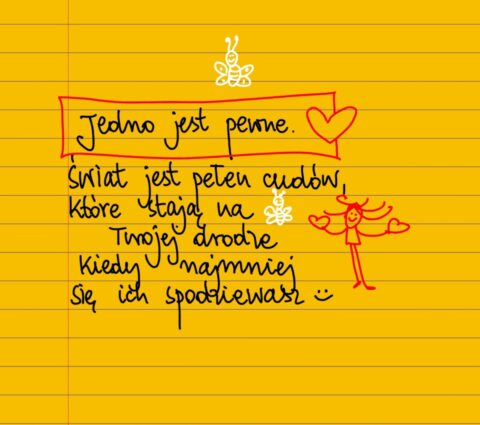 Jedno jest pewne.
Świat jest pełen cudów,
które stają na
Twojej drodze
Kiedy najmniej
się ich spodziewasz :)